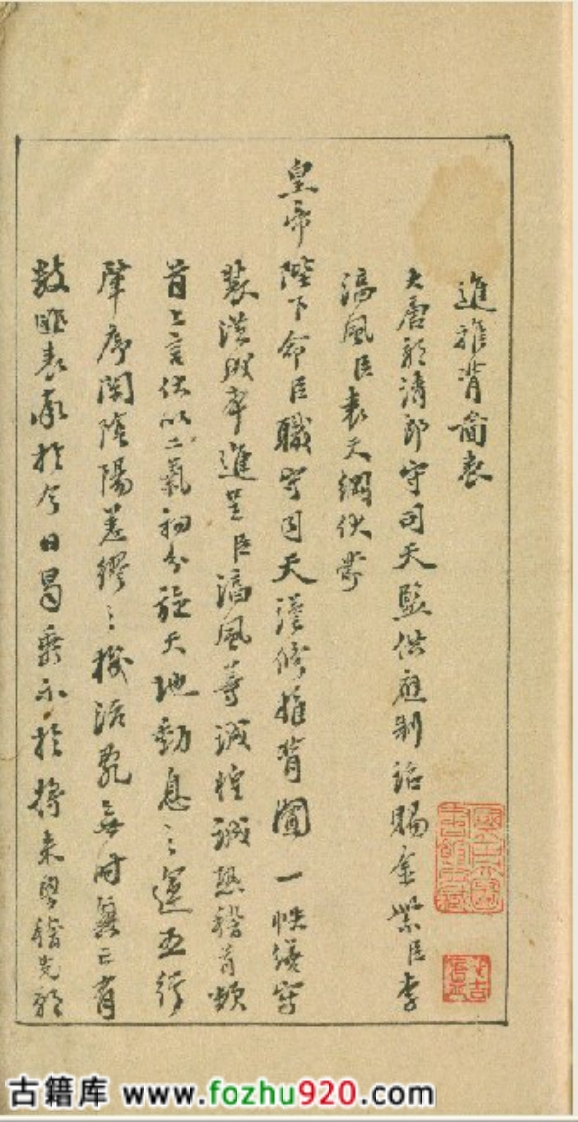 進推背圖表
大唐朝清郎守司天監供庭制詔賜金紫臣李
淳風臣袁天綱伏奉
皇帝陛下命臣職守司天謹修推背圖一帙繕寫
裝潢成本進呈臣淳風等誠惶誠恐稽首頓
首上言伏以二氣初分旋天地動息之運五行
肇序闡陰陽差繆之機治亂無時興亡有
數匪表象於今日曷垂示於將來學稽先
古籍库 www.fozhu920.com